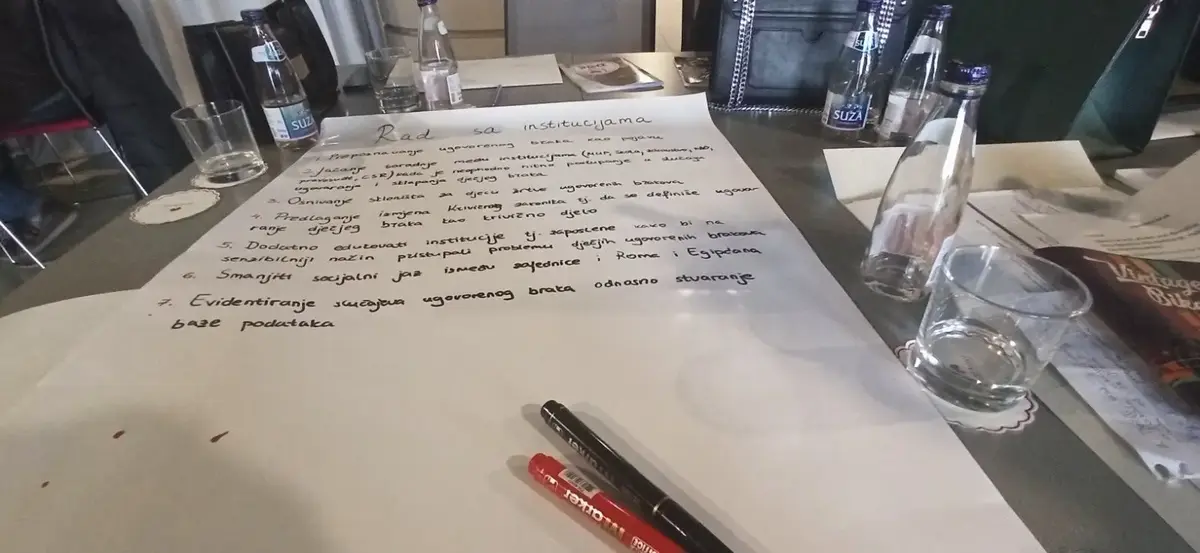 Rad sa institucijama
1. Prepoznavanje ugovorenog braka kao pojave
2. Jačanje saradnje među institucijama (NVP, Suda,
pravosuđe, CSR) kada je neophodno hitno postupanje u slučaju
ugovaranja i sklapanja dječjeg braka
3. Osnivanje skloništa za djecu žrtve ugovorenih brakova
4. Predlaganje izmjena Krivičnog zakonika tj. da se definiše ugova-
ranje dječjeg braka kao krivično djelo
5. Dodatno edukovati institucije tj. zaposlene kako bi na
senzibilniji način pristupali problemu dječjih ugovorenih brakova
6. Smanjiti socijalni jaz između zajednice i Roma i Egipćana
7. Evidentiranje slučajeva ugovorenog braka odnosno stvaranje
baze podataka
SUZA
SUZA
SUZA
marker
marker